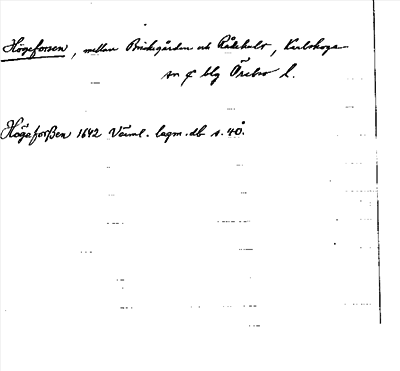 Högeforsen, mellan Bricksgården och Råtehult, Karlskoga
sn o blg Örebro l.
Högforßen 1642 Värml. lagm.db s. 40.